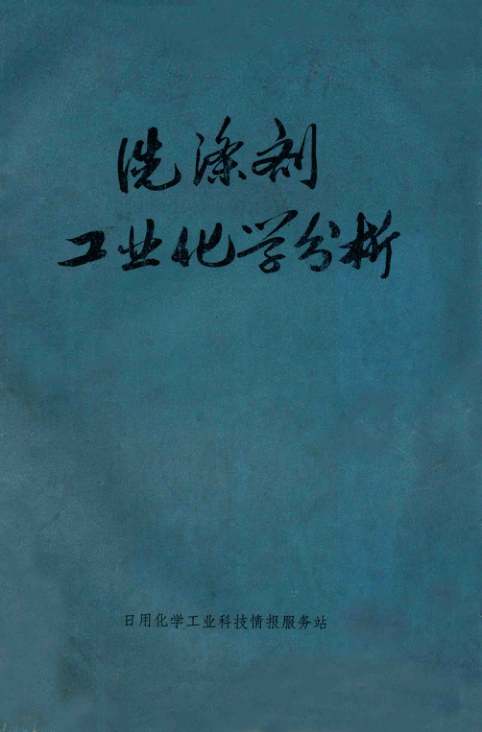 洗涤剂
工业化学分析
日用化学工业科技情报服务站